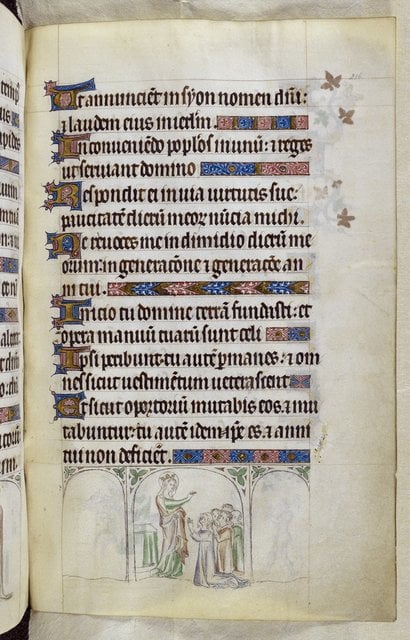 Ut annunciēt in syon nomen dn̄i:
⁊ laudem eius in ierl̄m.
In conueniēdo pop̄los in unū: ⁊ reges
ut seruiant domino
Respondit ei in uia uirtutis sue:
paucitatē dierū meoꝝ nūcia michi.
Ne reuoces me in dimidio dierū me
orum: in generacōne ⁊ generacōē an
ni tui.
Inicio tu domine terrā fundasti: et
opera manuū tuarū sunt celi
Ipsi peribunt tu autē p̄manes: ⁊ om
nes sicut uestimētum ueterascent
Et sicut oportoriū mutabis eos ⁊ mu
tabuntur: tu autē idem ip̄e es ⁊ anni
tui non deficiēt.